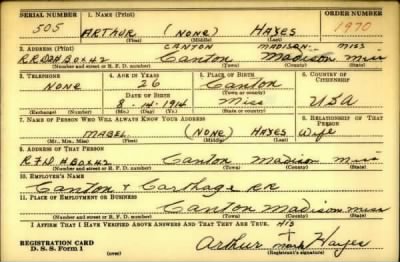 SERIAL NUMBER 1. NAME (Print) ORDER NUMBER
505 ARTHUR (NONE) HAYES 1970
(First) (Middle) (Last)
2. ADDRESS (Print) CANTON MADISON MISS
Box 42 Canton Madison Miss
(Number and street or R. F. D. number) (Town) (County) (State)
3. TELEPHONE 4. AGE IN YEARS 5. PLACE OF BIRTH 6. COUNTRY OF CITIZENSHIP
NONE 26 Canton
DATE OF BIRTH (Town or county)
8-14-1914 Miss USA
(Exchange) (Number) (Mo.) (Day) (Yr.) (State or country)
7. NAME OF PERSON WHO WILL ALWAYS KNOW YOUR ADDRESS 8. RELATIONSHIP OF THAT PERSON
MABEL (NONE) HAYES Wife
(Mr., Mrs., Miss) (First) (Middle) (Last)
9. ADDRESS OF THAT PERSON
Box 42 Canton Madison Miss
(Number and street or R. F. D. number) (Town) (County) (State)
10. EMPLOYER'S NAME
Canton & Carthage RR
11. PLACE OF EMPLOYMENT OR BUSINESS
Canton Madison Miss
(Number and street or R. F. D. number) (Town) (County) (State)
I AFFIRM THAT I HAVE VERIFIED ABOVE ANSWERS AND THAT THEY ARE TRUE.
HIS
REGISTRATION CARD Arthur + Hayes
D. S. S. Form 1 mark
(Registrant's signature)